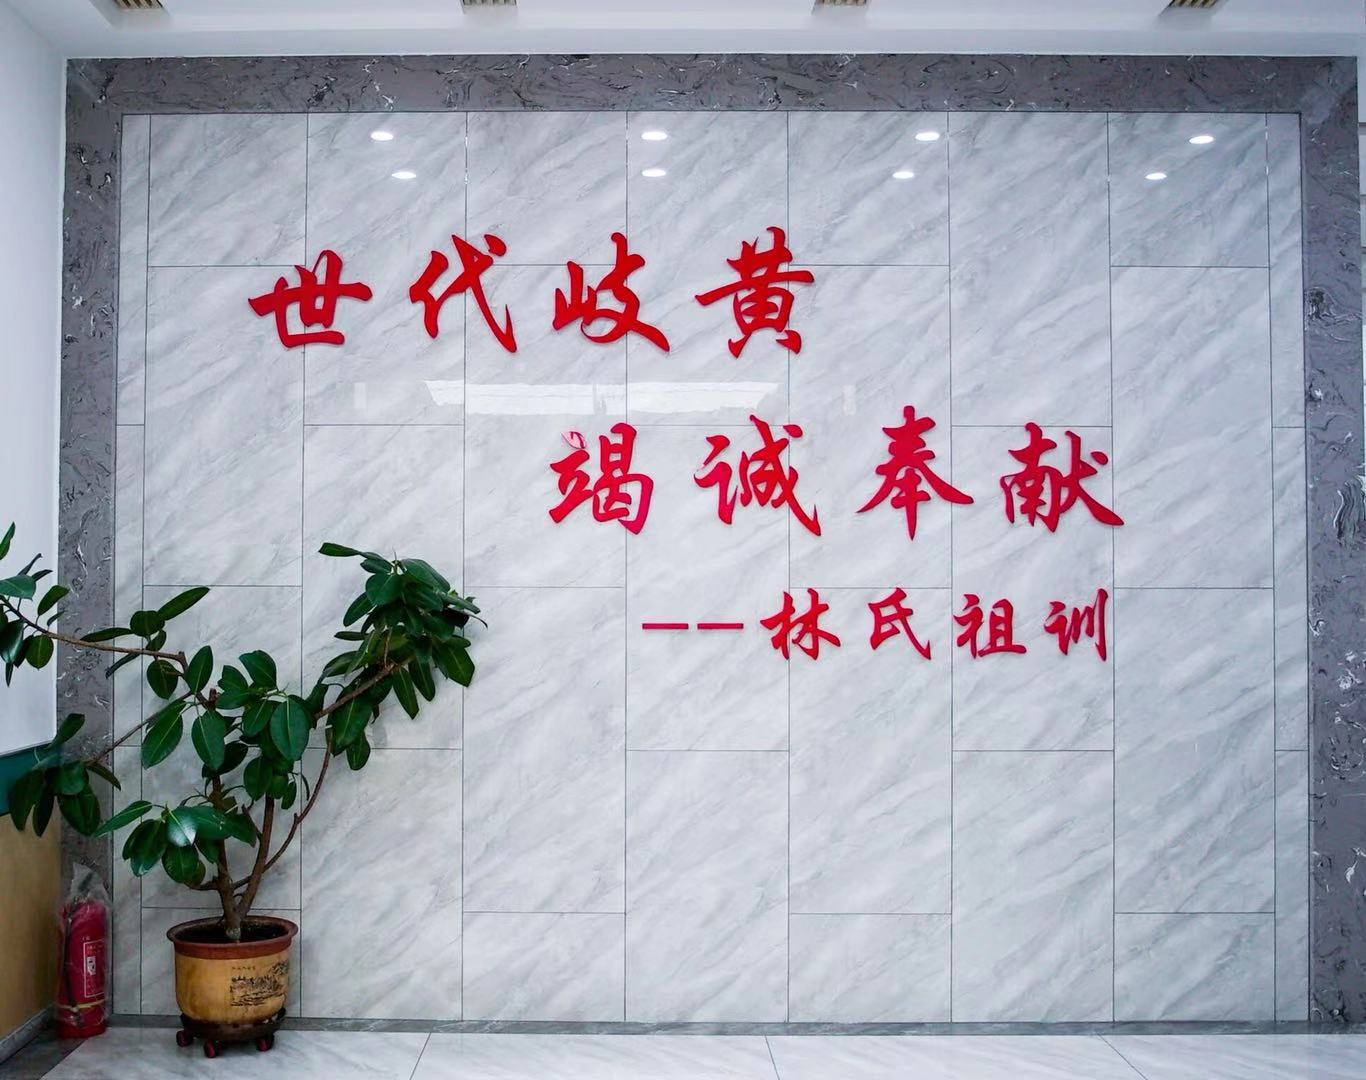 世代岐黄
竭诚奉献
——林氏祖训